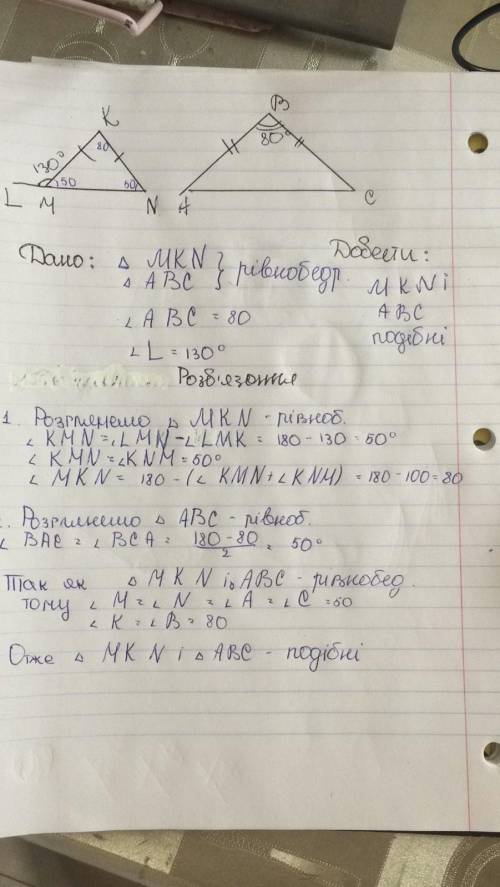 K
B
80
80°
130°
50
50
L
M
N
A
C
Дано: △ MKN } рівнобедр.
△ ABC
Довести:
MKN і
ABC
подібні
∠ ABC = 80
∠ L = 130°
Розв'язання
1. Розглянемо △ MKN - рівноб.
∠ KMN = ∠LMN - ∠LMK = 180 - 130 = 50°
∠ KMN = ∠KNM = 50°
∠ MKN = 180 - (∠ KMN + ∠ KNM) = 180 - 100 = 80
Розглянемо △ ABC - рівноб.
∠ BAC = ∠ BCA = 180 - 80 / 2 = 50°
Так як △ MKN і △ ABC - рівнобед.
тому ∠ M = ∠ N = ∠ A = ∠ C = 50
∠ K = ∠ B = 80
Отже △ MKN і △ ABC - подібні